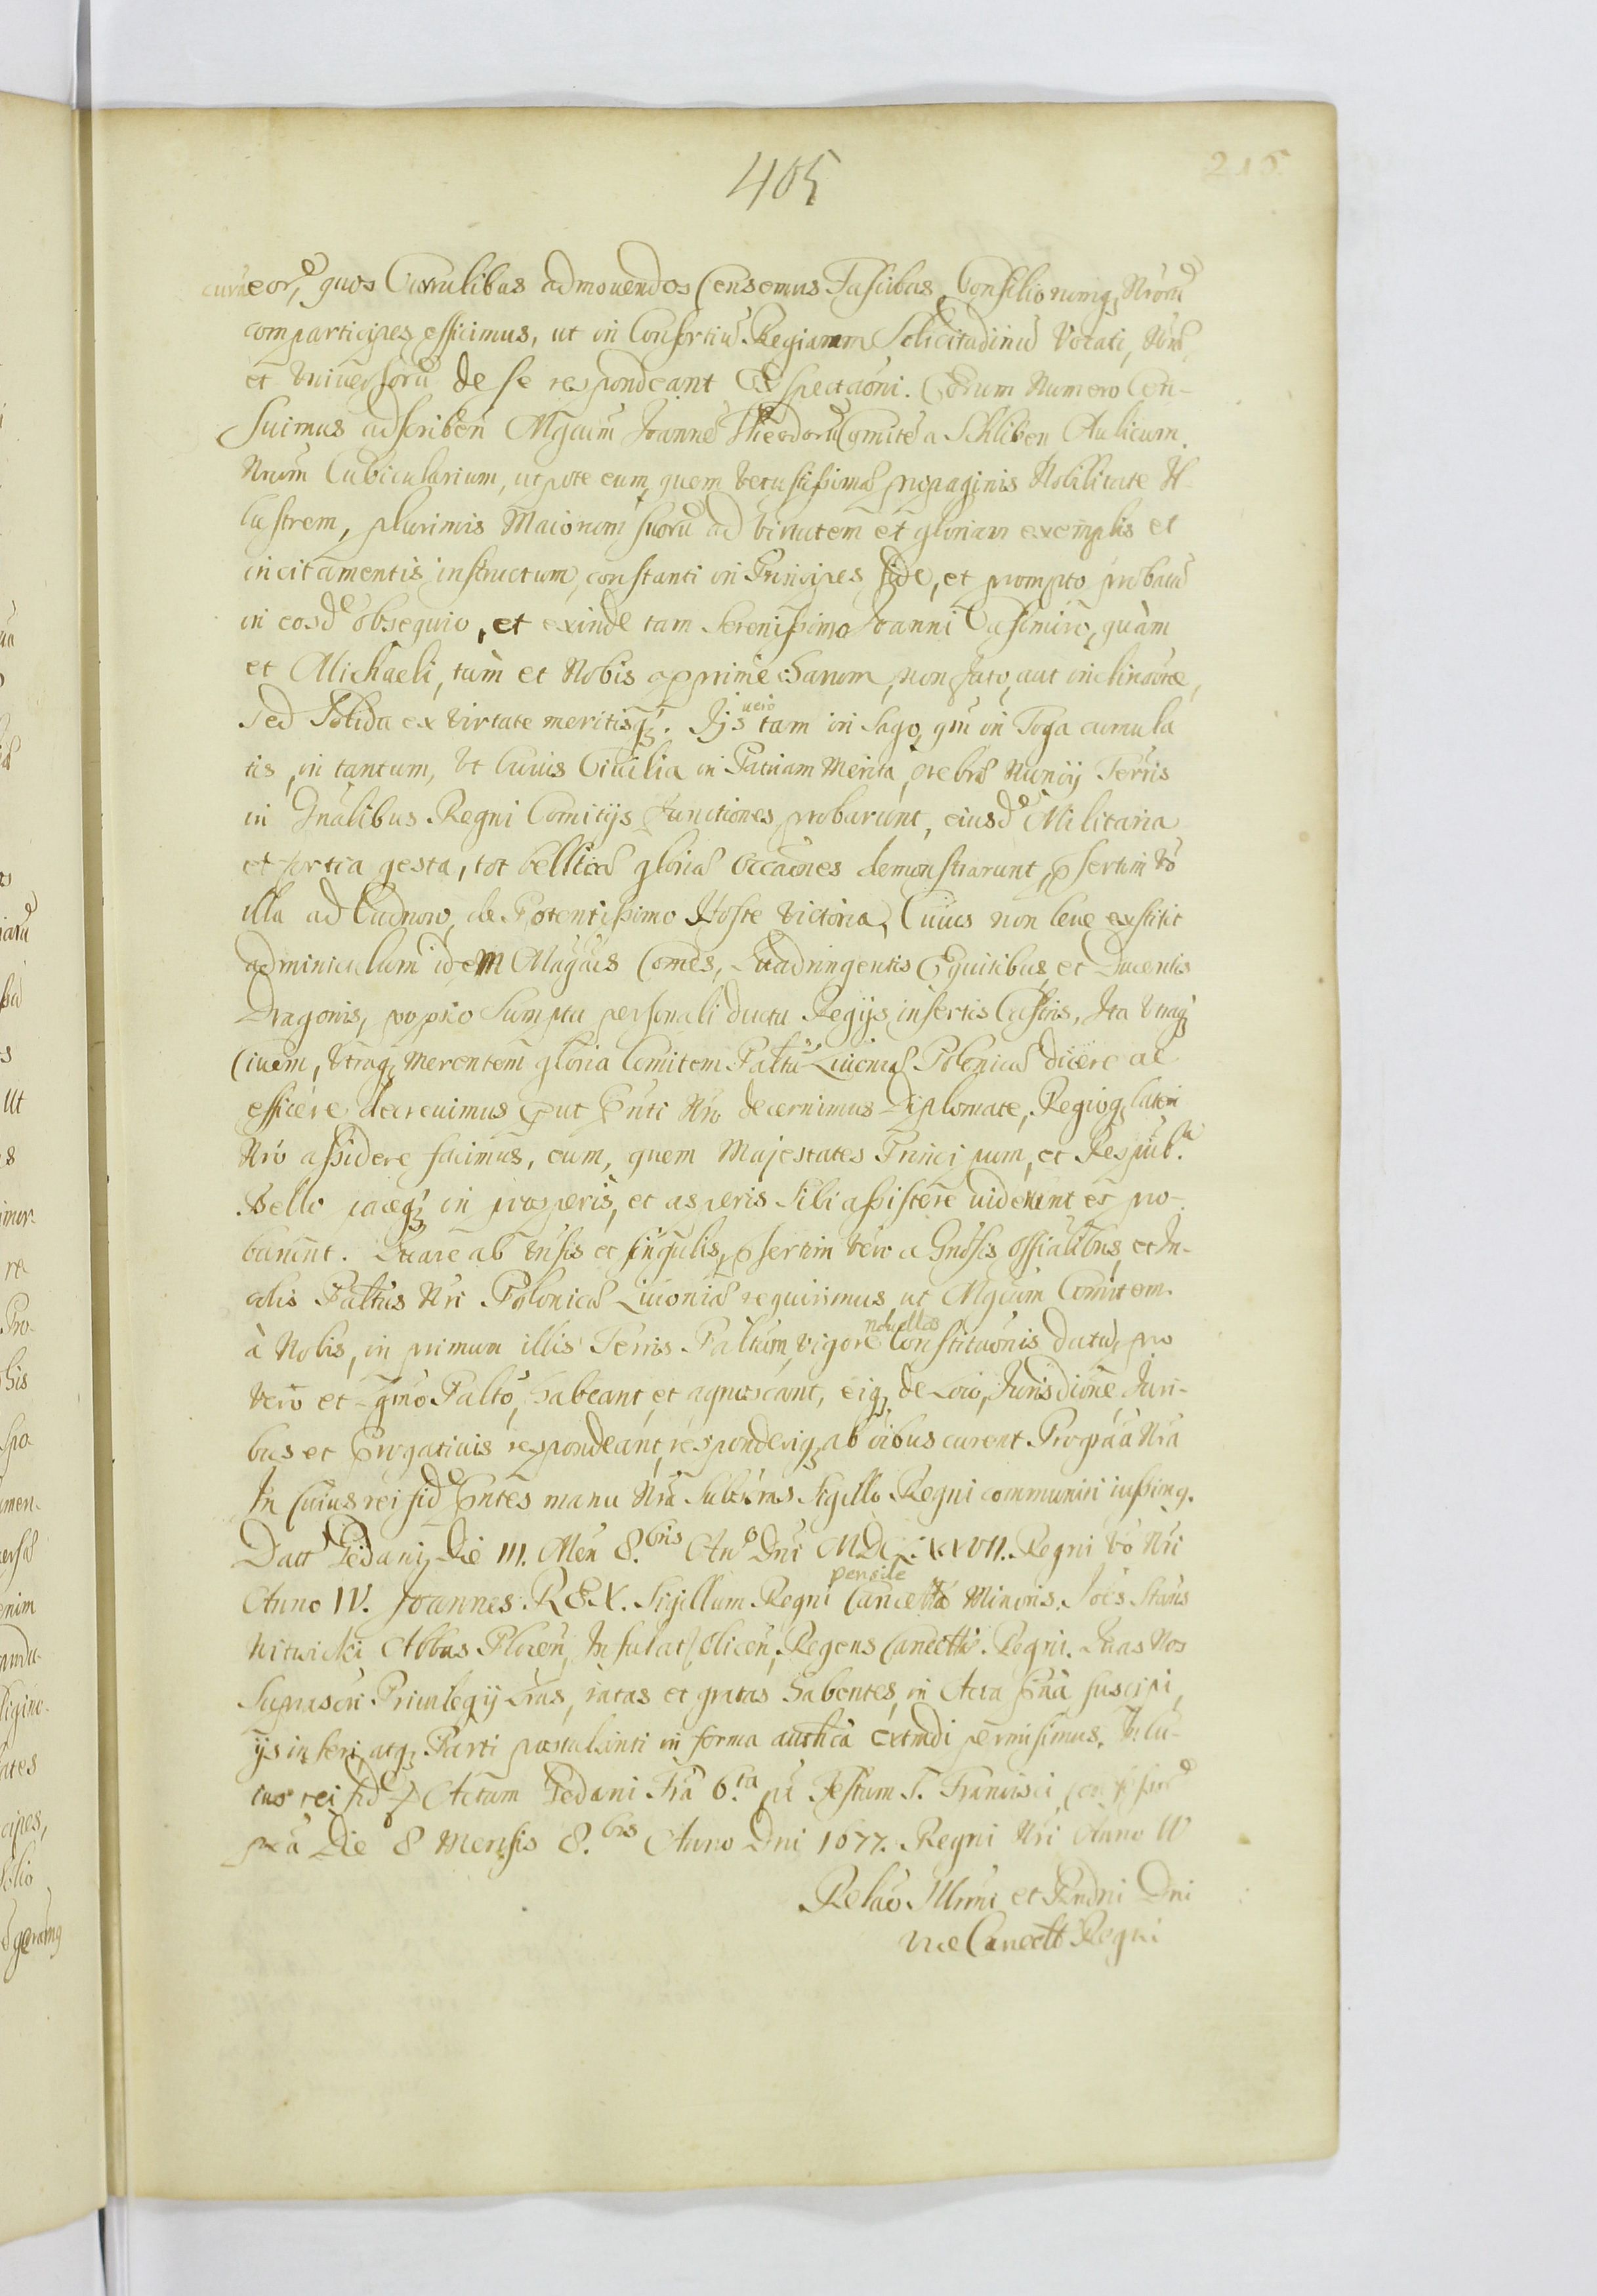 405
215
eorũ, quos Currulibus admouendos Censemus Fascibus, Consilionumq; Nrorũ
comparticipes efficimus, ut in Consortiũ Regiarum Solicitudinũ Vocati, Nr̃ae
et Vniuersorũ de se respondeant Exspectaõni. Quorum Numero Cen-
suimus adscriben Mgcum Joannẽ Theodorũ Comitẽ a Schliben Aulicum
Nrum Cubicularium, utpote eum, quem Vetustissimæ propaginis Nobilitate Il-
lustrem, plurimis Maiorum suorũ ad Virtutem et gloriam exemplis et
incitamentis instructum, constanti in Principes fide, et prompto probatũ
in eosdẽ obsequio, et exinde tam Serenissimo Joanni Casimiro, quàm
et Michaeli, tùm et Nobis apprime charum, non fato, aut inclinaõne,
sed Solida ex Virtute meritisq;. Ijs uero tam in Sago, qm̃ in Toga cumula
tis, in tantum, Vt Cuius Ciuilia in Patriam Merita, crebræ Nuncij Terris
in Gnalibus Regni Comitijs functiones probarunt, eiusdẽ Militaria
et fortia gesta, tot bellicæ gloriæ Occaõnes demonstrarunt, p̃sertim Vo
illa ad Cudnow, de Potentissimo Hoste Victoria, Cuius non leue exstitit
adminiculum idem Magcus Comes, Quadringentis Equitibus, et Ducentis
Dragonis, proprio Sumptu personali ductu Regijs insertis Castris, Ita Vtraq;
Ciuem, Vtraq; Merentem gloria Comitem Palt̃ũ Liuoniæ Polonicæ dicere ac
efficere decreuimus p̃ut p̃nti Nro decernimus Diplomate, Regioq; lateri
Nro assidere facimus, eum, quem Majestates Principum, et Respub.ca
Bello paceq; in prosperis, et asperis Sibi assistere uiderunt et pro-
barunt. Quare ab Vnsis et singulis, p̃sertim Vero a Gnosis Offialibus, et In-
colis Paltus Nri Polonicæ Liuoniæ requirimus ut Mgcum Comitem
à Nobis, in primum illis Terris Paltum, vigore nouellæ Constituõnis datũ, pro
Vero et gnõ Palto, habeant et agnoscant, eiq; de Loco, Jurisdiõne Juri-
bus et P̃rogatiuis respondeant, responderiq; ab oibus curent. Pro graa Nra
In Cuius rei fidẽ p̃ntes manu Nra Subscras Sigillo Regni communiri iussimq.
Datt Gedanij Die III. Men 8.bris Anº Dni MDCLXXVII. Regni Vo Nri
Anno IV. Joannes REX. Sigillum Regni pensile Cancellæ Minoris. Joẽs Staus
Witwicki Abbas Plocen, Insulat Olicen, Regens Cancellæ Regni. Quas Nos
Suprascri Priuilegij Lras, ratas et gratas habentes, in Acta p̃nã suscipi,
ijs inseri, atq; Parti postulanti in forma authca extradi permisimus. In Cu-
ius rei fidẽ Actum Gedani Fra 6.ta pt Festum S. Francisci confessorẽ
pxa Die 8 Mensis 8.bris Anno Dni 1677. Regni Nri Anno IV
Relaõ Illrmi et Rndni Dni
ViceCancell Regni